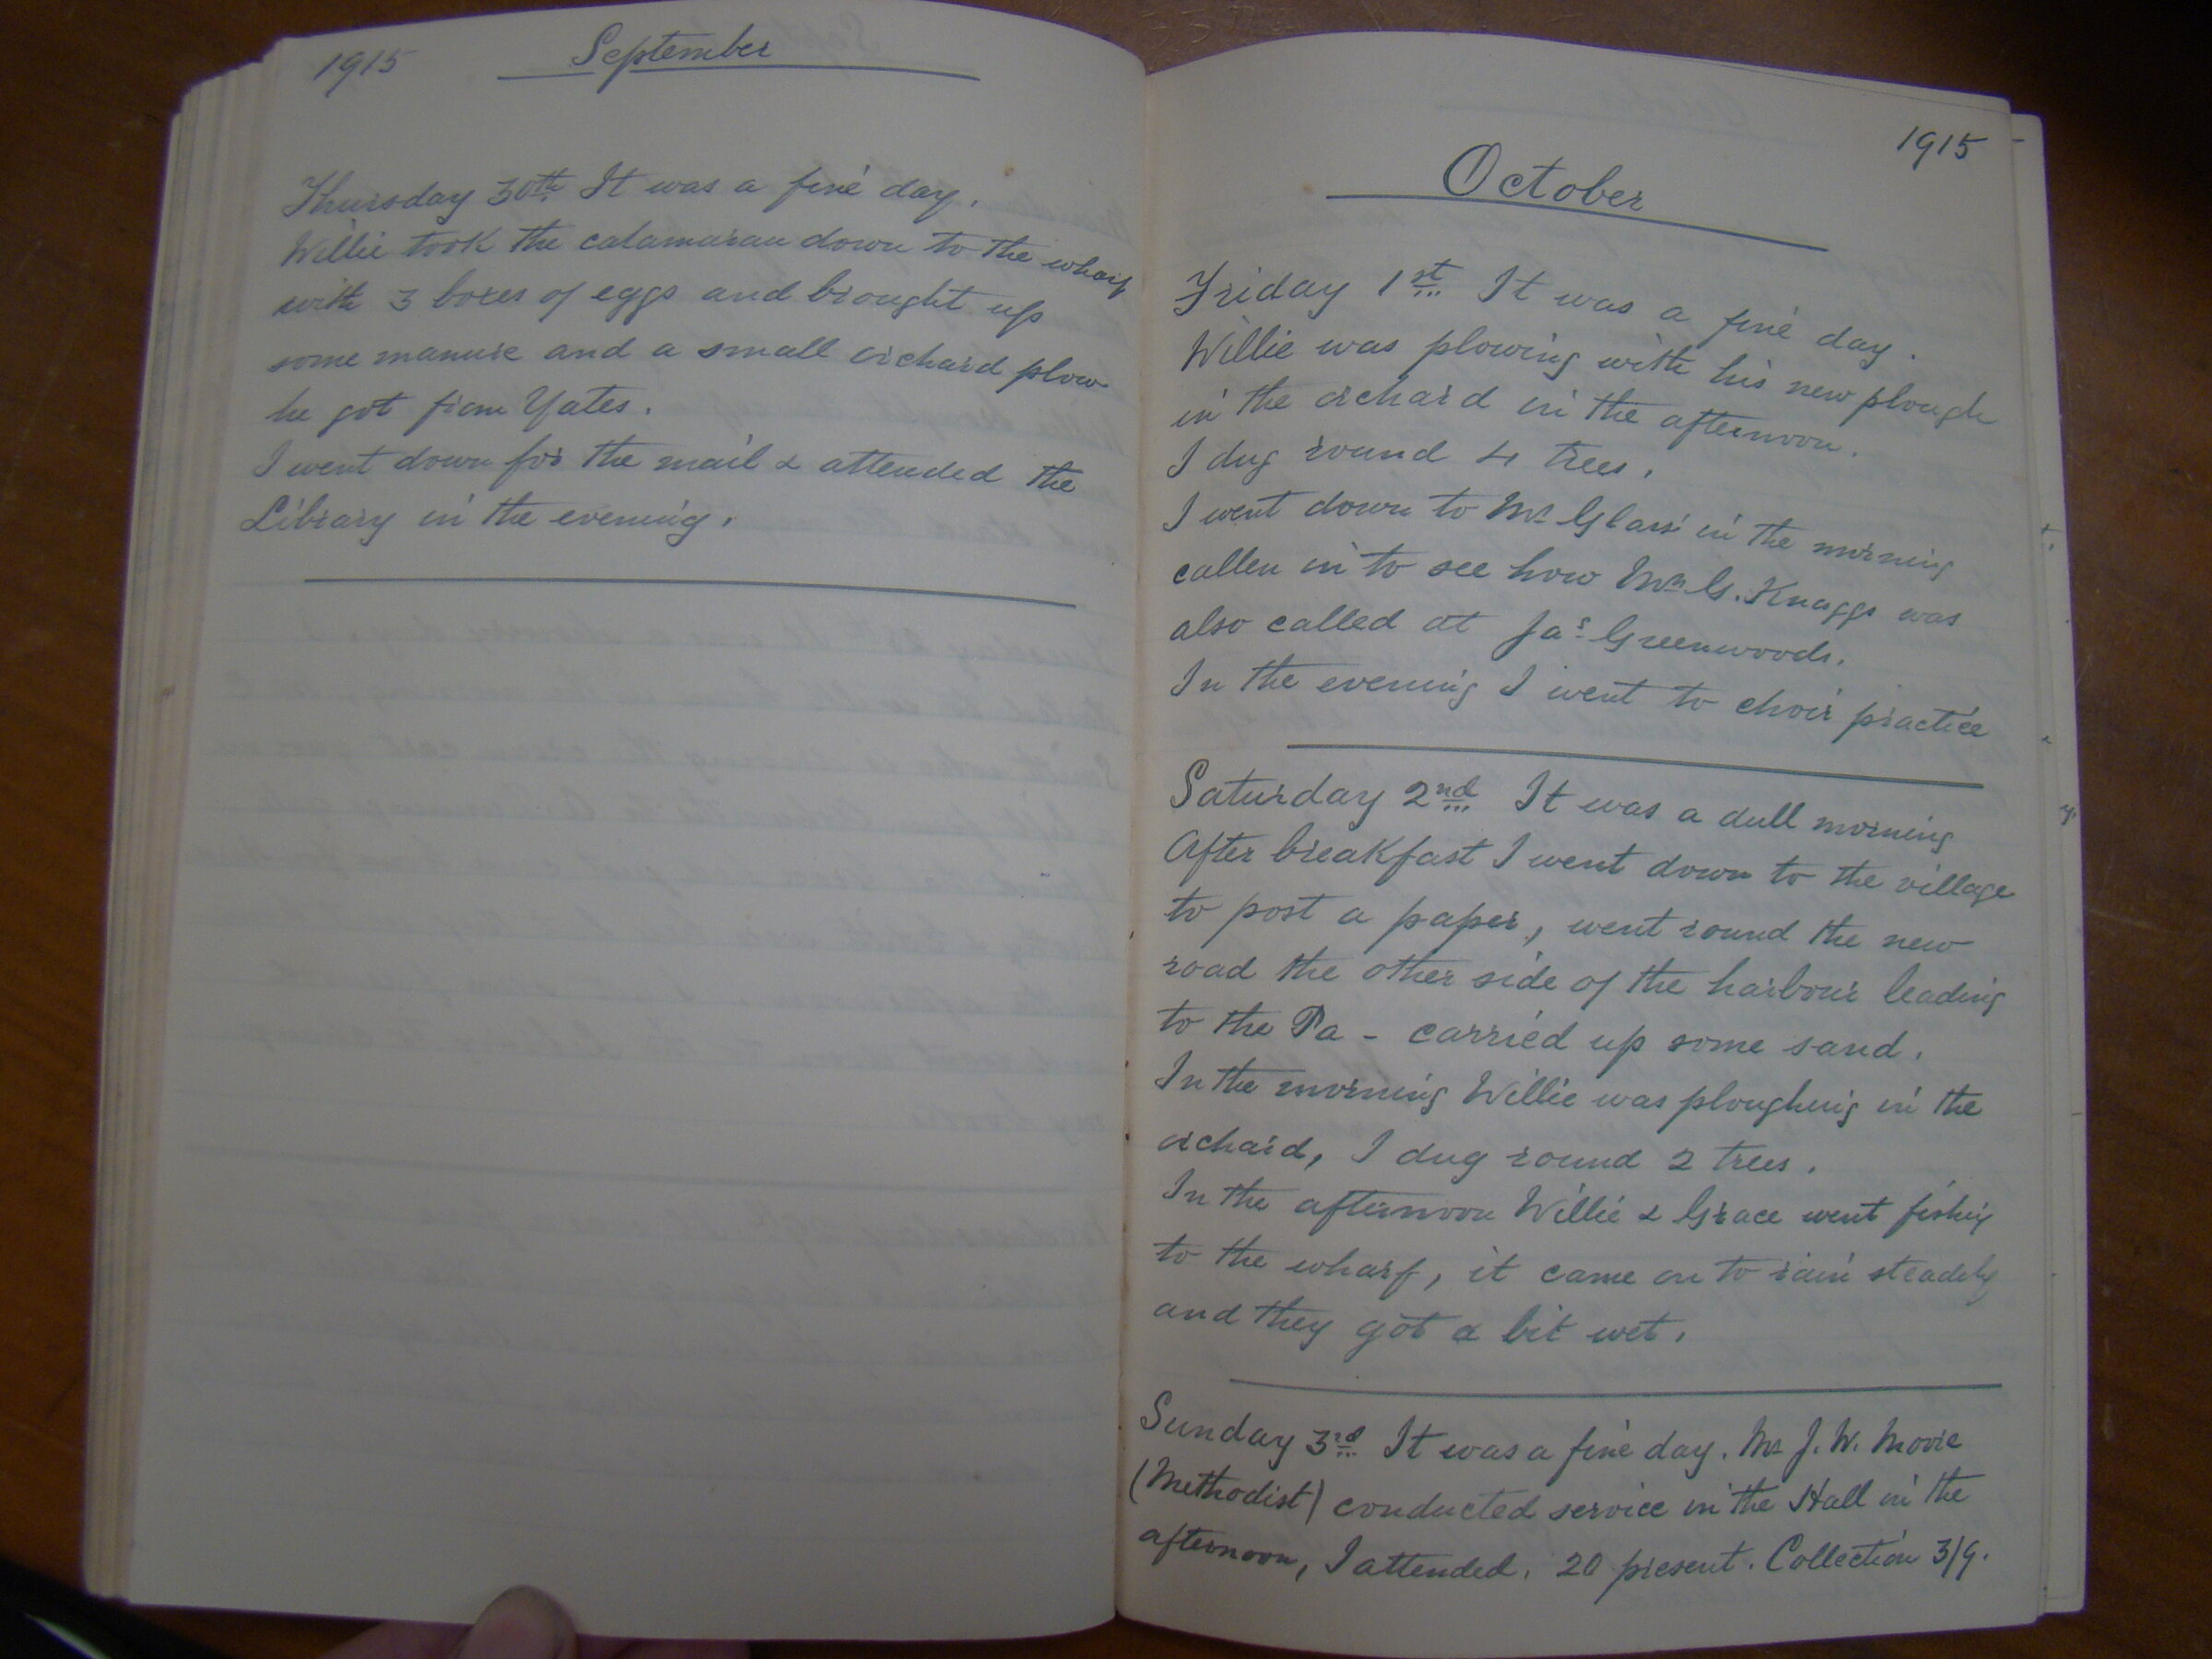 1915 September
Thursday 30th It was a fine day.
Willie took the catamaran down to the wharf
with 3 boxes of eggs and brought up
some manure and a small orchard plow
he got from Yates.
I went down for the mail & attended the
Library in the evening.
1915
October
Friday 1st It was a fine day.
Willie was plowing with his new plough
in the orchard in the afternoon.
I dug round 4 trees.
I went down to Mr Glass' in the morning
callen in to see how Mrs G. Knaggs was
also called at Jas Greenwoods.
In the evening I went to choir practice
Saturday 2nd It was a dull morning
After breakfast I went down to the village
to post a paper, went round the new
road the other side of the harbour leading
to the Pa - carried up some sand.
In the morning Willie was ploughing in the
orchard, I dug round 2 trees.
In the afternoon Willie & Grace went fishing
to the wharf, it came on to rain steadily
and they got a bit wet.
Sunday 3rd It was a fine day. Mr J. W.
(Methodist) conducted service in the Hall in the
afternoon, I attended. 20 present. Collection 3/9.